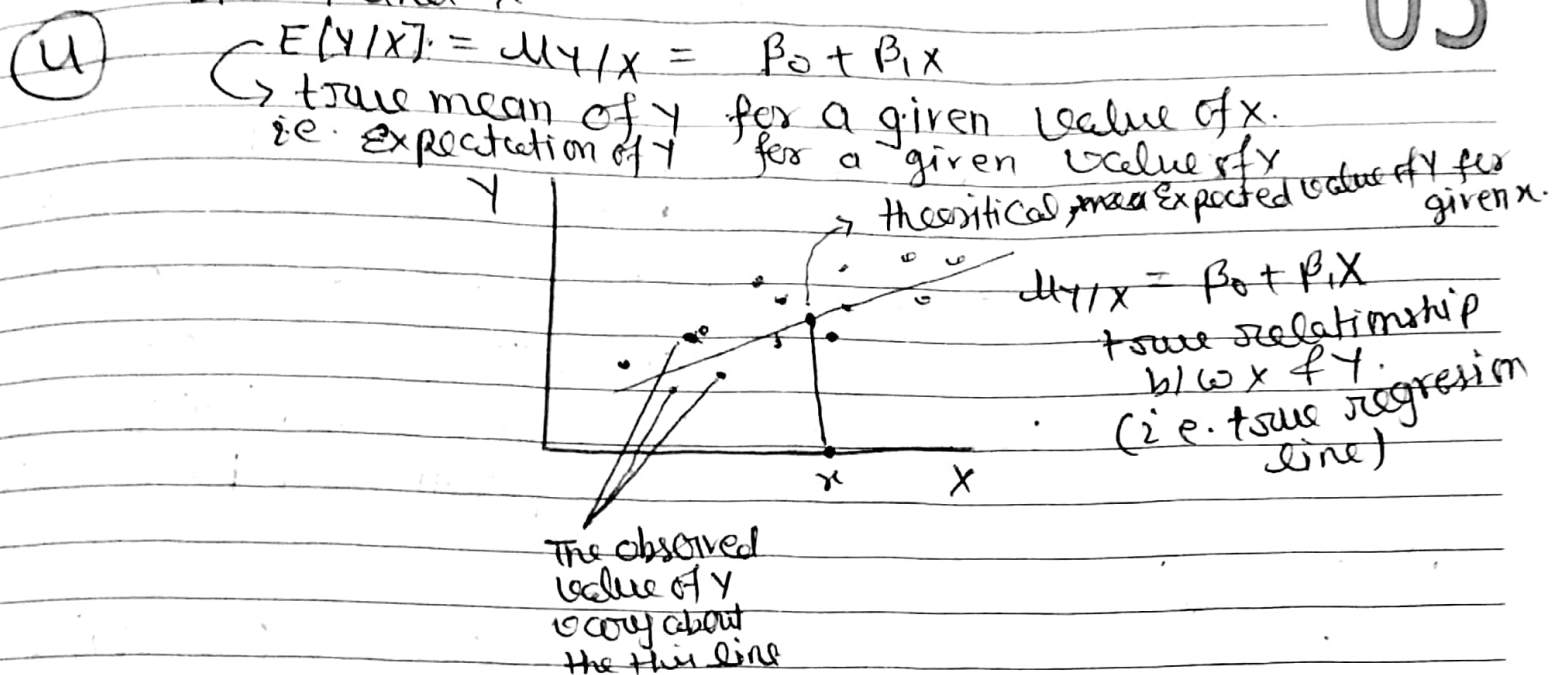 4
E[Y/X] = μY/X = β0 + β1X
true mean of Y for a given value of X.
i.e. Expectation of Y for a given value of X
Y
theoritical, Expected value of Y for
given x.
μY/X = β0 + β1X
true relationship
b/w X & Y.
(i.e. true regresion
line)
x
X
The observed
value of Y
vary about
the this line